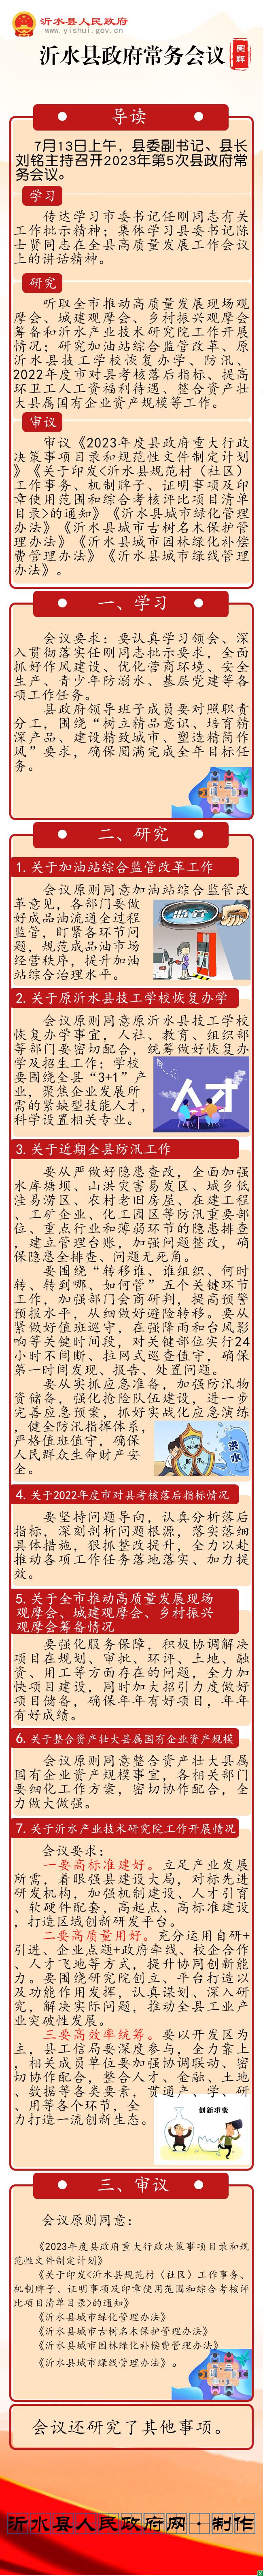 沂水县人民政府
www.yishui.gov.cn
沂水县政府常务会议
图解
导读
7月13日上午，县委副书记、县长
刘铭主持召开2023年第5次县政府常
务会议。
学习
传达学习市委书记任刚同志有关
工作批示精神；集体学习县委书记陈
士贤同志在全县高质量发展工作会议
上的讲话精神。
研究
听取全市推动高质量发展现场观
摩会、城建观摩会、乡村振兴观摩会
筹备和沂水产业技术研究院工作开展
情况；研究加油站综合监管改革、原
沂水县技工学校恢复办学、防汛、
2022年度市对县考核落后指标、提高
环卫工人工资福利待遇、整合资产壮
大县属国有企业资产规模等工作。
审议
审议《2023年度县政府重大行政
决策事项目录和规范性文件制定计划
》《关于印发<沂水县规范村（社区）
工作事务、机制牌子、证明事项及印
章使用范围和综合考核评比项目清单
目录>的通知》《沂水县城市绿化管理
办法》《沂水县城市古树名木保护管
理办法》《沂水县城市园林绿化补偿
费管理办法》《沂水县城市绿线管理
办法》。
一、学习
会议要求：要认真学习领会、深
入贯彻落实任刚同志批示要求，全面
抓好作风建设、优化营商环境、安全
生产、青少年防溺水、基层党建等各
项工作任务。
县政府领导班子成员要对照职责
分工，围绕“树立精品意识、培育精
深产品、建设精致城市、塑造精简作
风”要求，确保圆满完成全年目标任
务。
二、研究
1.关于加油站综合监管改革工作
会议原则同意加油站综合监管改
革意见，各部门要做
好成品油流通全过程
监管，盯紧各环节问
题，规范成品油市场
经营秩序，提升加油
站综合治理水平。
2.关于原沂水县技工学校恢复办学
会议原则同意原沂水县技工学校
恢复办学事宜，人社、教育、组织部
等部门要密切配合，统筹做好恢复办
学及招生工作；学校
要围绕全县“3+1”产
业，聚焦企业发展所
需的紧缺型技能人才，
科学设置相关专业。
人才
3.关于近期全县防汛工作
要从严做好隐患查改，全面加强
水库塘坝、山洪灾害易发区、城乡低
洼易涝区、农村老旧房屋、在建工程
、工矿企业、化工园区等防汛重要部
位、重点行业和薄弱环节的隐患排查
，建立管理台账，加强问题整改，确
保隐患全排查、问题无死角。
要围绕“转移谁、谁组织、何时
转、转到哪、如何管”五个关键环节
工作，加强部门会商研判，提高预警
预报水平，从细做好避险转移。要从
紧做好值班巡守，在强降雨和台风影
响等关键时间段，对关键部位实行24
小时不间断、拉网式巡查值守，确保
第一时间发现、报告、处置问题。
要从实抓应急准备，加强防汛物
资储备，强化抢险队伍建设，进一步
完善应急预案，抓好实战化应急演练
，健全防汛指挥体系，
严格值班值守，确保
人民群众生命财产安
全。
洪水
4.关于2022年度市对县考核落后指标情况
要坚持问题导向，认真分析落后
指标，深刻剖析问题根源，落实落细
具体措施，狠抓整改提升，全力以赴
推动各项工作任务落地落实、加力提
效。
5.关于全市推动高质量发展现场
观摩会、城建观摩会、乡村振兴
观摩会筹备情况
要强化服务保障，积极协调解决
项目在规划、审批、环评、土地、融
资、用工等方面存在的问题，全力加
快项目建设，同时加大招引力度做好
项目储备，确保年年有好项目，年年
有好成绩。
6.关于整合资产壮大县属国有企业资产规模
会议原则同意整合资产壮大县属
国有企业资产规模事宜，各相关部门
要细化工作方案，密切协作配合，全
力做大做强。
7.关于沂水产业技术研究院工作开展情况
会议要求：
一要高标准建好。立足产业发展
所需，着眼强县建设大局，对标先进
研发机构，加强机制建设、人才引育
、软硬件配套，高起点、高标准建设
，打造区域创新研发平台。
二要高质量用好。充分运用自研+
引进、企业点题+政府牵线、校企合作
、人才飞地等方式，提升协同创新能
力。要围绕研究院创立、平台打造以
及功能作用发挥，认真谋划、深入研
究，解决实际问题，推动全县工业产
业突破性发展。
三要高效率统筹。要以开发区为
主，县工信局要深度参与，全力靠上
，相关成员单位要加强协调联动、密
切协作配合，整合人才、金融、土地
、数据等各类要素，贯通产、学、研
、用等各个环节，全
力打造一流创新生态。
创新求变
三、审议
会议原则同意：
《2023年度县政府重大行政决策事项目录和规
范性文件制定计划》
《关于印发<沂水县规范村（社区）工作事务、
机制牌子、证明事项及印章使用范围和综合考核评
比项目清单目录>的通知》
《沂水县城市绿化管理办法》
《沂水县城市古树名木保护管理办法》
《沂水县城市园林绿化补偿费管理办法》
《沂水县城市绿线管理办法》。
会议还研究了其他事项。
沂水县人民政府网·制作